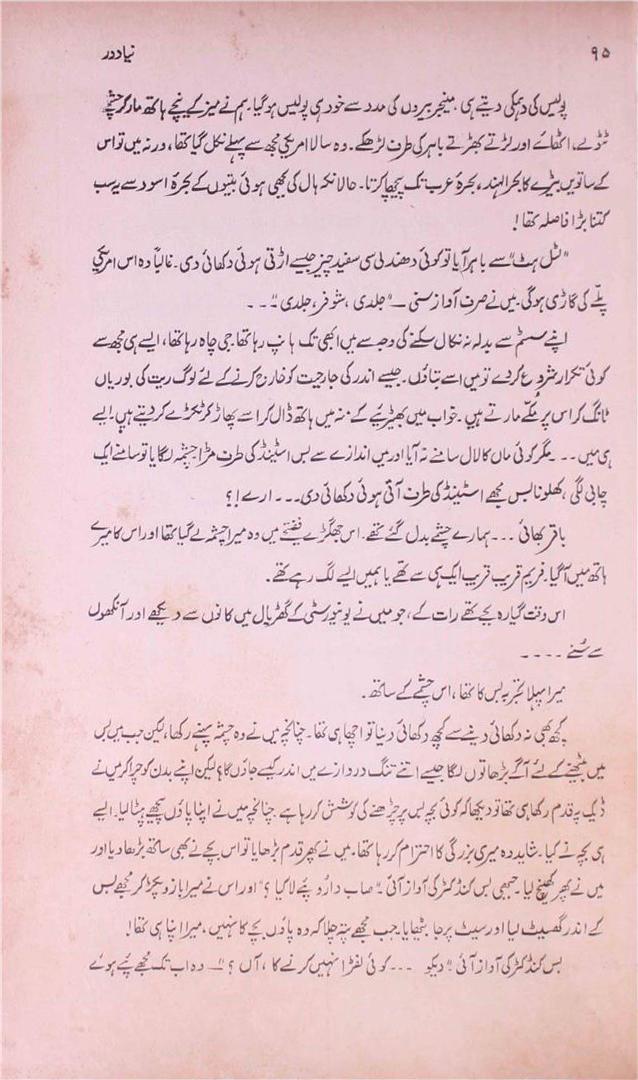 ۹۵
نیا دور
پولیس کی دہمکی دیتے ہی، مینجر بیروں کی مدد سے خود ہی پولیس ہو گیا۔ ہم نے میز کے نیچے ہاتھ مار کر چشمے
ٹٹولے، اٹھائے اور لڑتے بھڑتے باہر کی طرف لڑھکے۔ وہ سالا امریکی مجھ سے پہلے نکل گیا تھا، ورنہ میں تو اس
کے ساتویں بیڑے کا بحر الہند، بحرۂ عرب تک پیچھا کرتا۔ حالانکہ ہال کی بجھی ہوئی بتیوں کے بحرۂ اسود سے یہ سب
کتنا بڑا فاصلہ تھا!
"لٹل ہٹ" سے باہر آیا تو کوئی دھندلی سی سفید چیز جیسے اڑتی ہوئی دکھائی دی۔ غالباً وہ اس امریکی
پلّے کی گاڑی ہوگی۔ میں نے صرف آواز سنی — "جلدی، شوفر، جلدی"۔۔۔
اپنے سسٹم سے بدلہ نہ نکال سکنے کی وجہ سے میں ابھی تک ہانپ رہا تھا۔ جی چاہ رہا تھا، ایسے ہی مجھ سے
کوئی تکرار شروع کر دے تو میں اسے بتاؤں۔ جیسے اندر کی جارحیت کو خارج کرنے کے لئے لوگ ریت کی بوریاں
ٹانگ کر اس پر مکے مارتے ہیں۔ خواب میں بھیڑیے کے منہ میں ہاتھ ڈال کر اسے پھاڑ کر ٹکڑے کر دیتے ہیں! ایسے
ہی میں۔۔۔ مگر کوئی ماں کا لال سامنے نہ آیا اور میں اندازے سے بس اسٹینڈ کی طرف مڑا چشمہ لگایا تو سامنے ایک
چابی لگی، کھلونا بس مجھے اسٹینڈ کی طرف آتی ہوئی دکھائی دی۔۔۔ ارے!؟
باقر بھائی۔۔۔ ہمارے چشمے بدل گئے تھے۔ اس جھگڑے فضتے میں وہ میرا چشمہ لے گیا تھا اور اس کا میرے
ہاتھ میں آگیا۔ فریم قریب قریب ایک ہی سے تھے یا ہمیں ایسے لگ رہے تھے۔
اس وقت گیارہ بجے تھے رات کے، جو میں نے یونیورسٹی کے گھڑیال میں کانوں سے دیکھے اور آنکھوں
سے سُنے۔۔۔۔
میرا پہلا تجربہ بس کا تھا، اس چشمے کے ساتھ۔
کچھ بھی نہ دکھائی دینے سے کچھ دکھائی دینا تو اچھا ہی تھا۔ چنانچہ میں نے وہ چشمہ پہنے رکھا، لیکن جب میں بس
میں بیٹھنے کے لئے آگے بڑھا تو یوں لگا جیسے اتنے تنگ دروازے میں اندر کیسے جاؤں گا؟ لیکن اپنے بدن کو چرا کر میں نے
ڈیک پہ قدم رکھا ہی تھا تو دیکھا کہ کوئی بچہ بس پر چڑھنے کی کوشش کر رہا ہے۔ چنانچہ میں نے اپنا پاؤں پیچھے ہٹا لیا۔ ایسے
ہی بچہ نے کیا۔ شاید وہ میری بزرگی کا احترام کر رہا تھا۔ میں نے پھر قدم بڑھایا تو اس بچے نے بھی ساتھ بڑھا دیا اور
میں نے پھر کھینچ لیا۔ جبھی بس کنڈکٹر کی آواز آئی۔ "صاب دارو پئے لا گیا؟" اور اس نے میرا بازو پکڑ کر مجھے بس
کے اندر گھسیٹ لیا اور سیٹ پر جا بٹھایا۔ جب مجھے پتہ چلا کہ وہ پاؤں بچے کا نہیں، میرا اپنا ہی تھا!
بس کنڈکٹر کی آواز آئی "دیکو۔۔۔ کوئی لفڑا نہیں کرنے کا، آں؟" — وہ اب تک مجھے پئے ہوئے